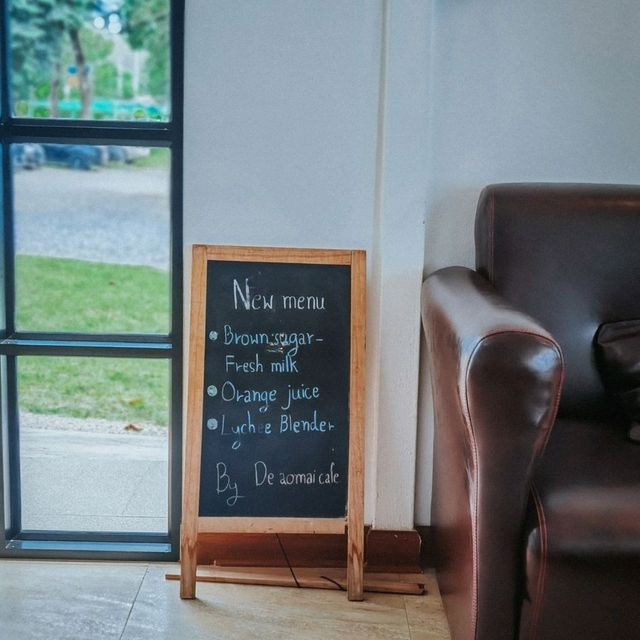 New menu
Brown sugar-
Fresh milk
Orange juice
Lychee Blender
By De aomai cafe